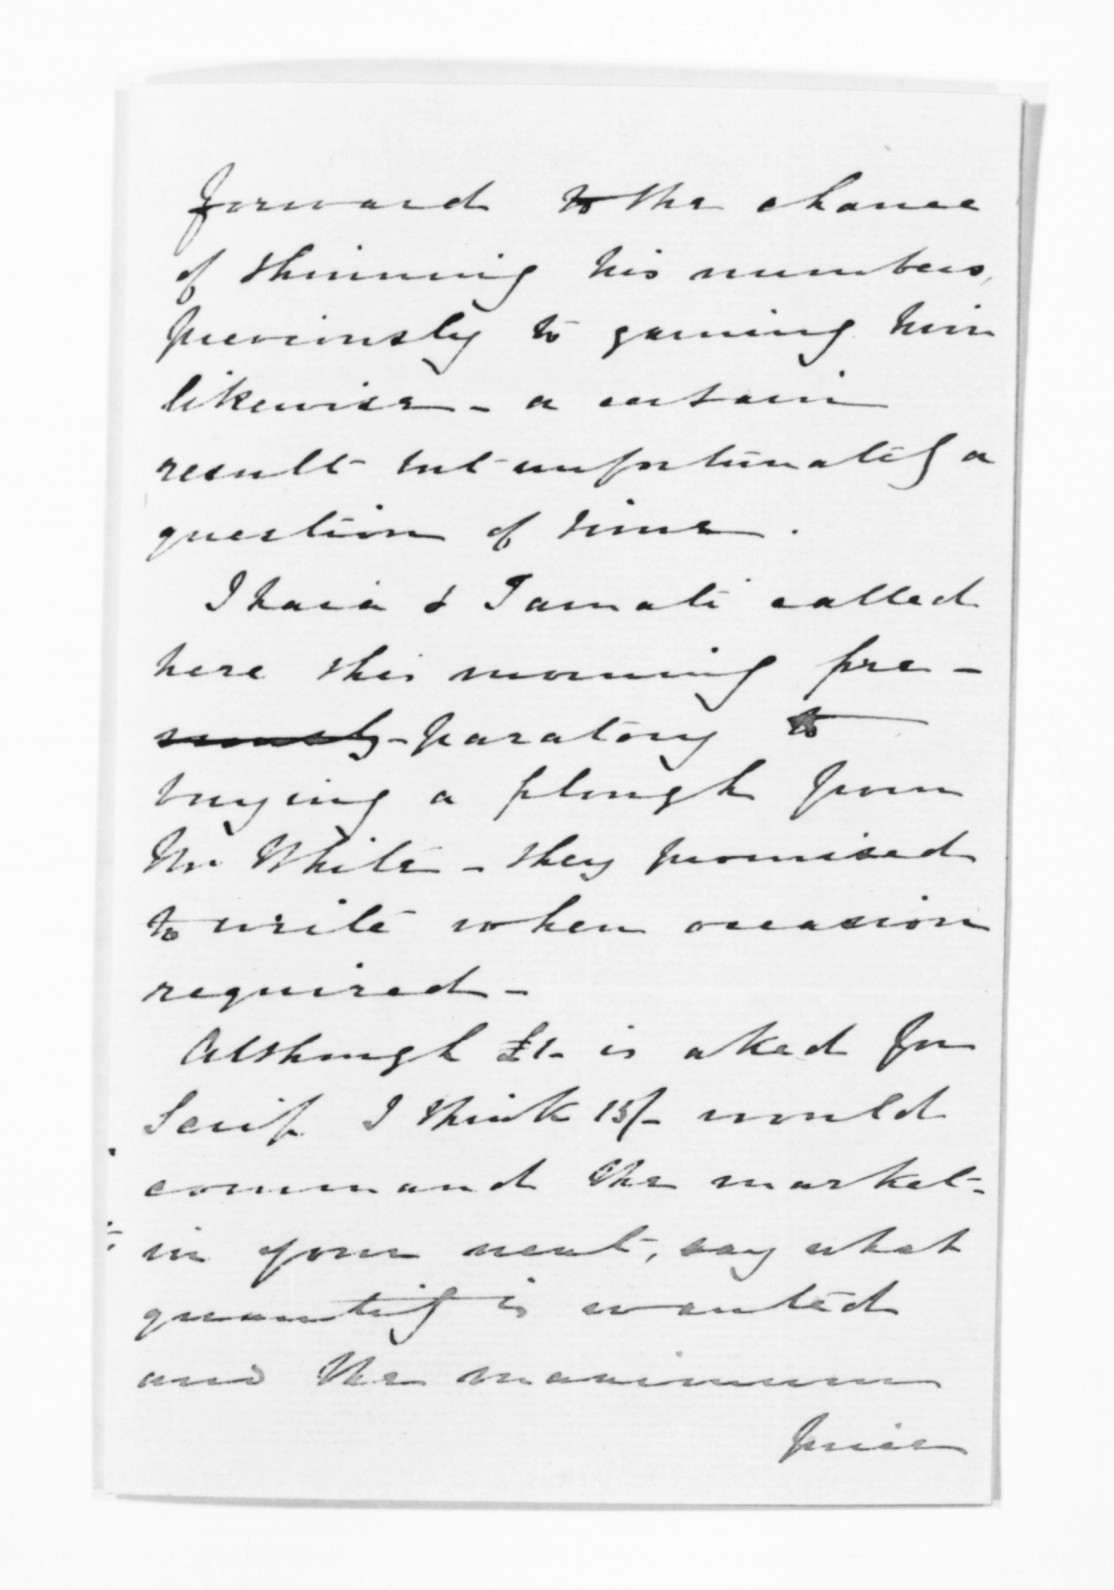 forward to the chance
of thinning his numbers,
previously to gaining him
likewise - a certain
result but unfortunately a
question of time.
Ihaia & Tamati called
here this morning pre-
viously-paratory to
buying a plough from
Mr White - they promised
to write when occasion
required -
Although £1- is aked for
Scrip I think 15/- would
command the market-
in your next, say what
quantity is wanted
and the maximum
price